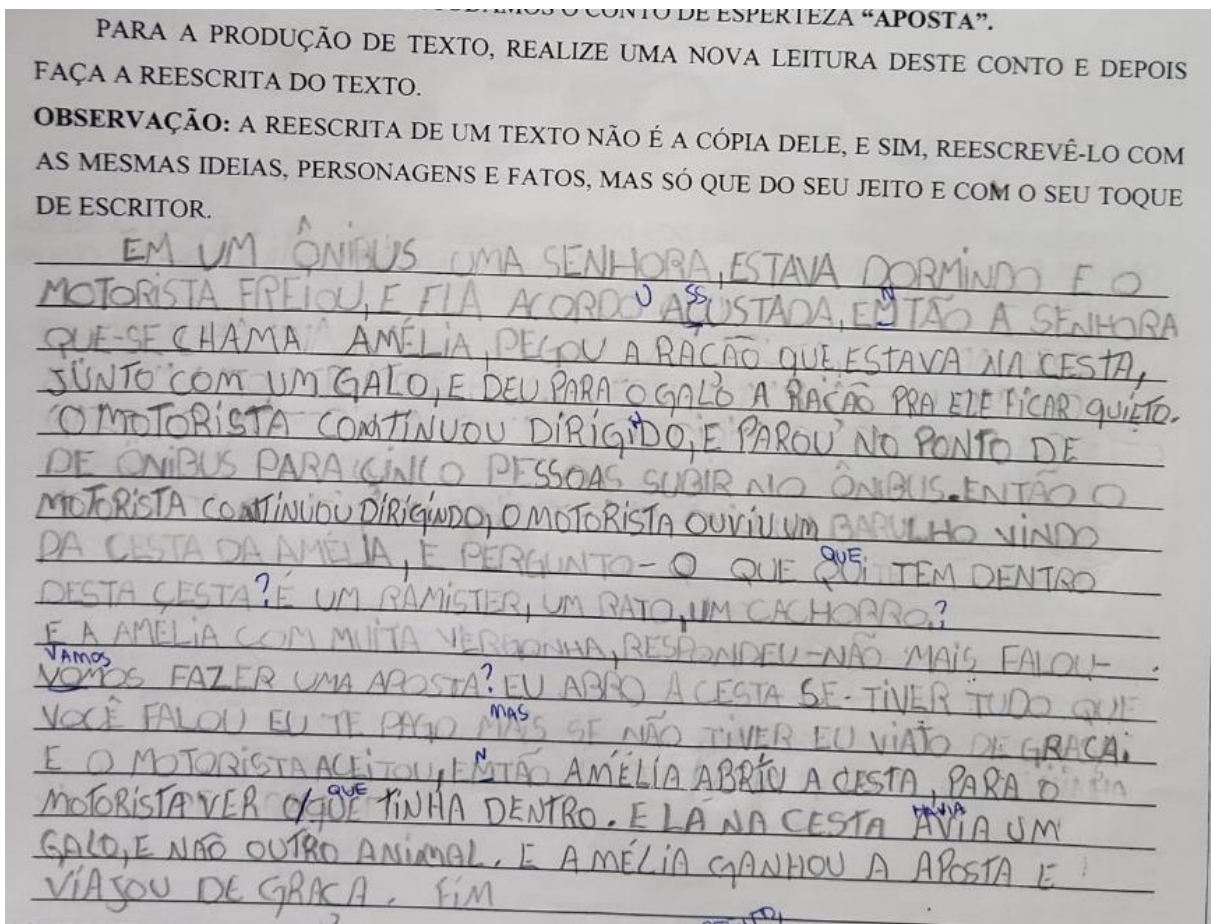 O CONTO DE ESPERTEZA “APOSTA”.
PARA A PRODUÇÃO DE TEXTO, REALIZE UMA NOVA LEITURA DESTE CONTO E DEPOIS
FAÇA A REESCRITA DO TEXTO.
OBSERVAÇÃO: A REESCRITA DE UM TEXTO NÃO É A CÓPIA DELE, E SIM, REESCREVÊ-LO COM
AS MESMAS IDEIAS, PERSONAGENS E FATOS, MAS SÓ QUE DO SEU JEITO E COM O SEU TOQUE
DE ESCRITOR.
EM UM ÔNIBUS UMA SENHORA, ESTAVA DORMINDO E O
U SS N
MOTORISTA FREIOU, E ELA ACORDO AÇUSTADA, EMTÃO A SENHORA
QUE-SE CHAMA AMÉLIA, PEGOU A RAÇÃO QUE, ESTAVA NA CESTA,
JUNTO COM UM GALO, E DEU PARA O GALO A RAÇÃO PRA ELE FICAR QUIETO.
N
O MOTORISTA CONTINUOU DIRIGIDO, E PAROU NO PONTO DE
DE ÔNIBUS PARA CINCO PESSOAS SUBIR NO ÔNIBUS. ENTÃO O
MOTORISTA CONTINUOU DIRIGINDO, O MOTORISTA OUVIU UM BARULHO VINDO
QUE
DA CESTA DA AMÉLIA, E PERGUNTO - O QUE QUI TEM DENTRO
DESTA CESTA? É UM RAMISTER, UM RATO, UM CACHORRO?
E A AMELIA COM MUITA VERGONHA, RESPONDEU - NÃO MAIS FALOU -
VAMOS
VOMOS FAZER UMA APOSTA? EU ABRO A CESTA SE - TIVER TUDO QUE
MAS
VOCÊ FALOU EU TE PAGO MAIS SE NÃO TIVER EU VIAJO DE GRAÇA.
N
E O MOTORISTA ACEITOU, EMTÃO AMÉLIA ABRIU A CESTA, PARA O
QUE HAVIA
MOTORISTA VER O QUE TINHA DENTRO. E LÁ NA CESTA AVIA UM
GALO, E NÃO OUTRO ANIMAL. E AMÉLIA GANHOU A APOSTA E
VIAJOU DE GRAÇA. FIM